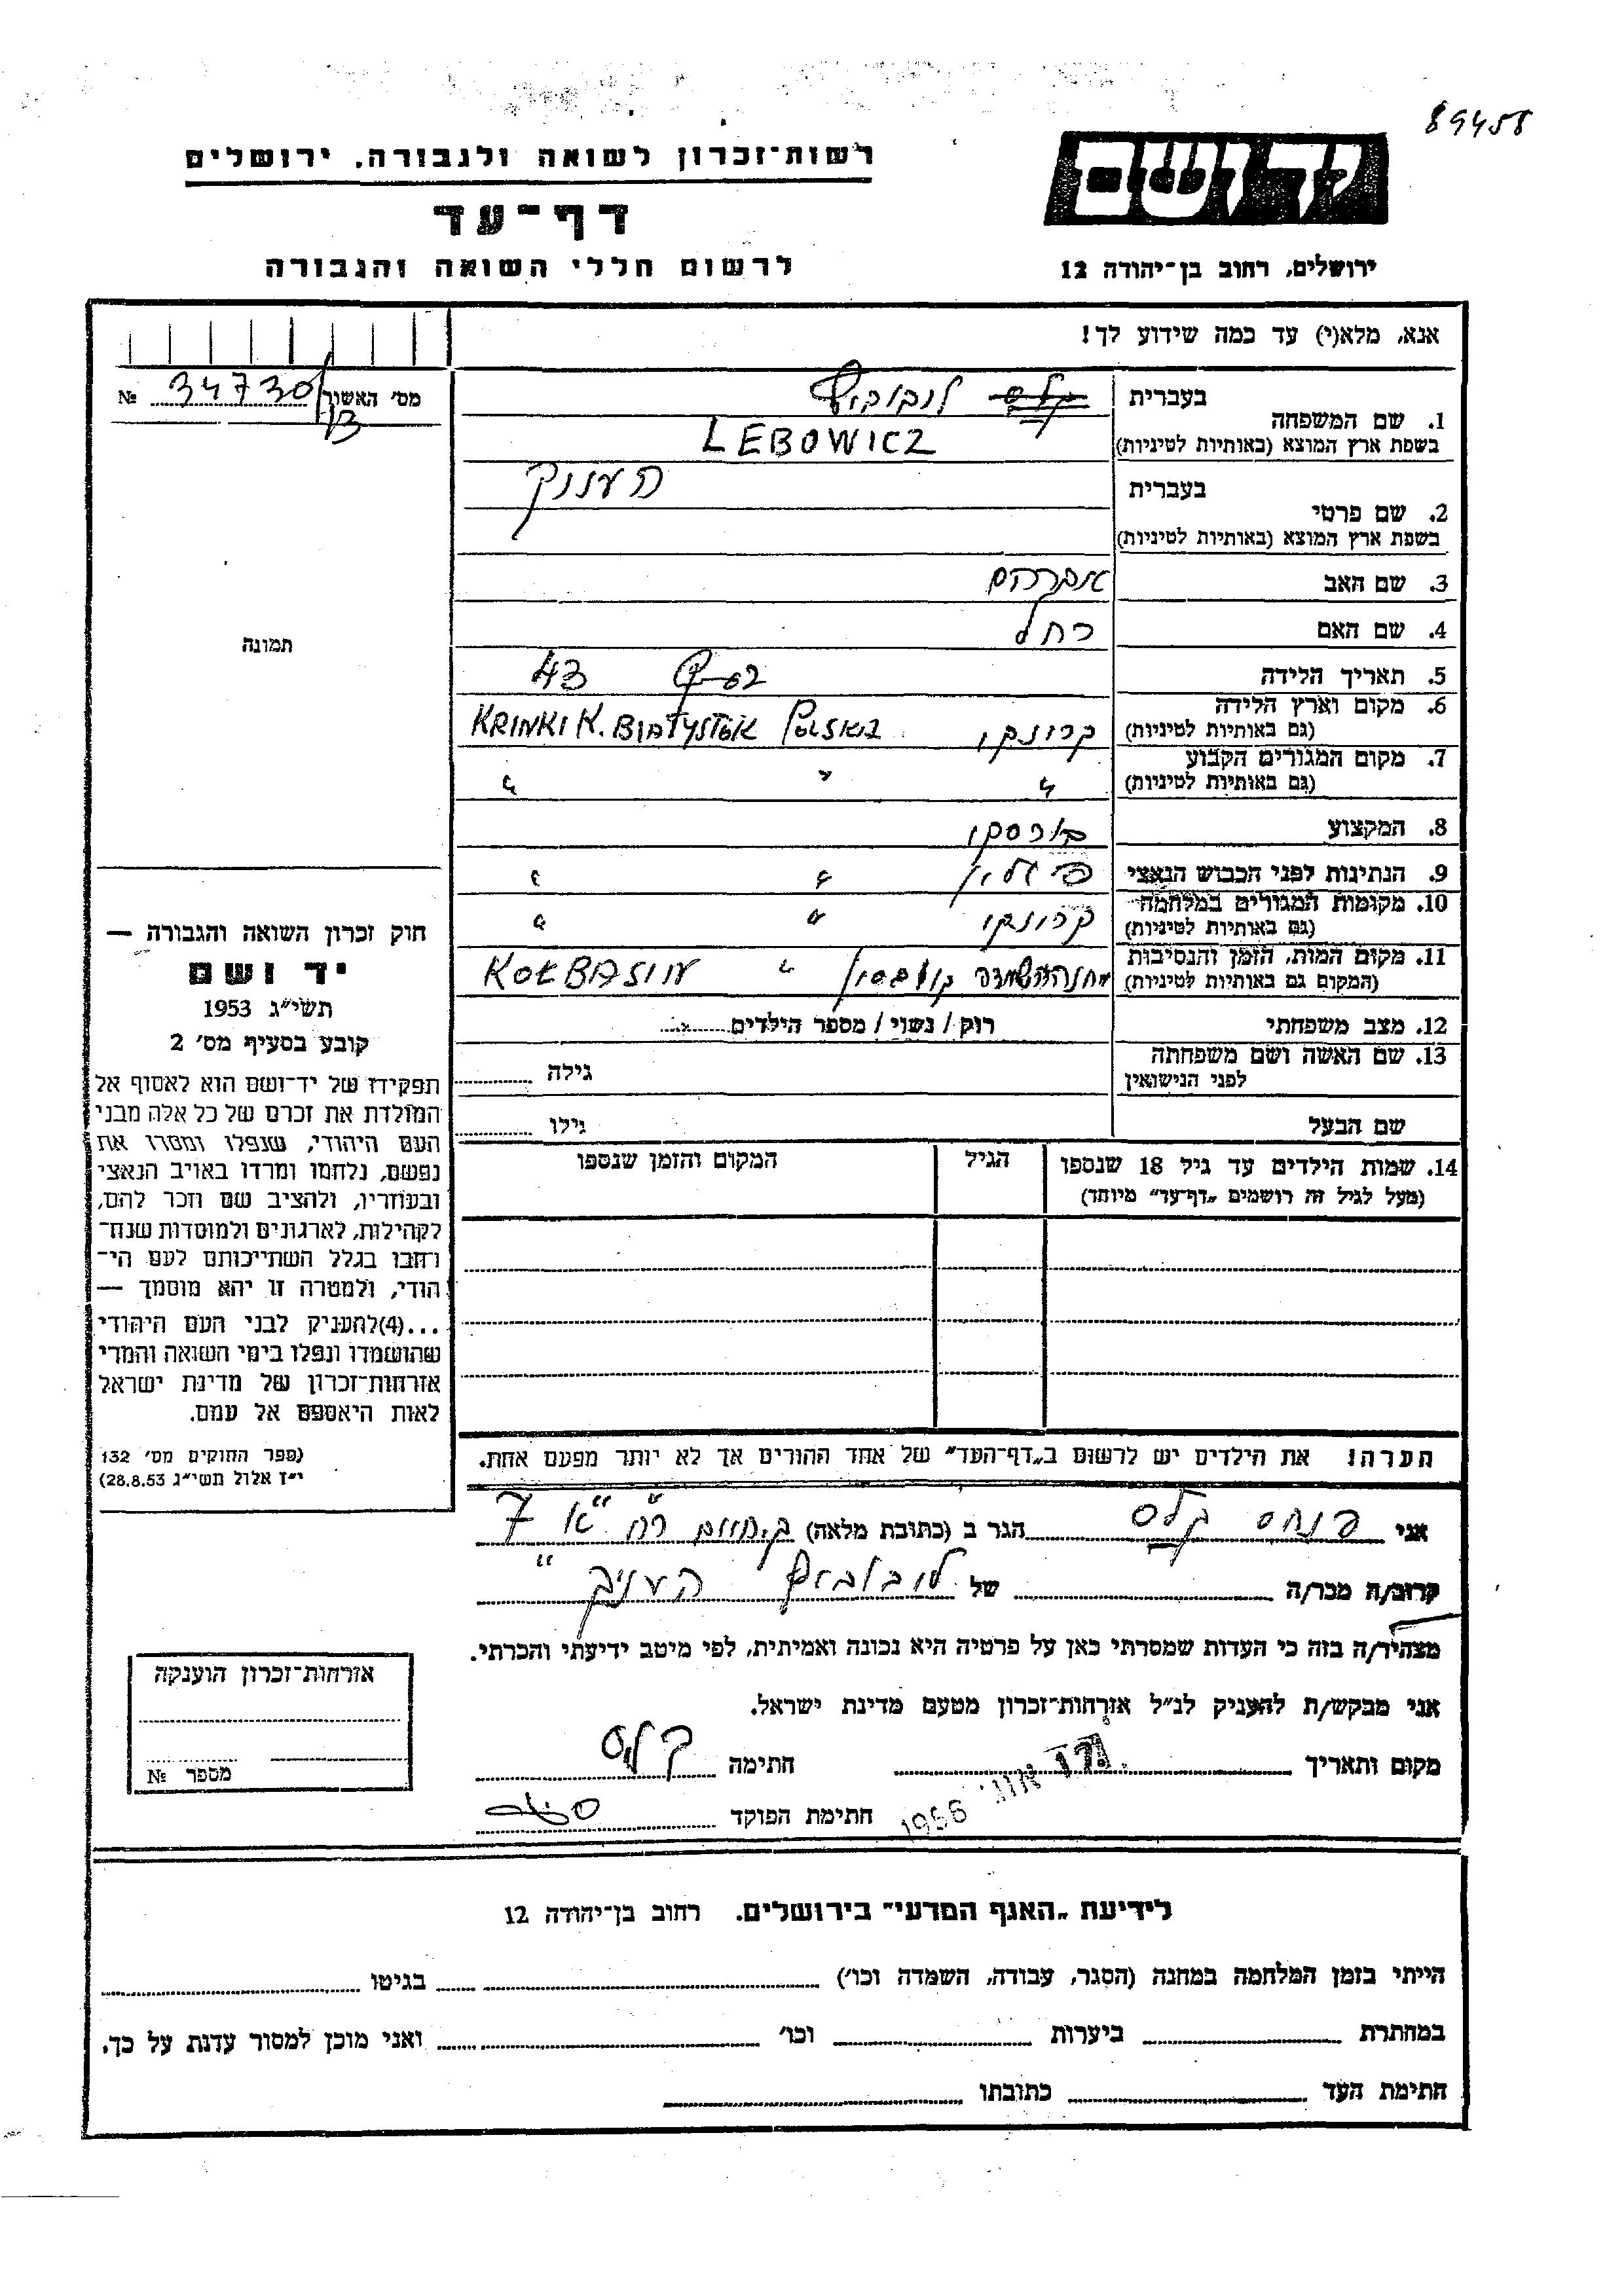 89458
יד ושם
ירושלים, רחוב בן־יהודה 12
רשות־זכרון לשואה ולגבורה. ירושלים
דף־עד
לרשום חללי השואה והגבורה
אנא, מלא(י) עד כמה שידוע לך!
מס' האשור 34730 №
1. שם המשפחה
בעברית
בשפת ארץ המוצא (באותיות לטיניות) LEBOWICZ
2. שם פרטי
בעברית הענוך
בשפת ארץ המוצא (באותיות לטיניות)
3. שם האב אברהם
4. שם האם רחל
5. תאריך הלידה 43
6. מקום וארץ הלידה קרונקי Polska KRINKI K. BIAŁYSTOK
(גם באותיות לטיניות)
7. מקום המגורים הקבוע " " "
(גם באותיות לטיניות)
8. המקצוע בורסקי
9. הנתינות לפני הכבוש הנאצי פולין " "
10. מקומות המגורים במלחמה קרונקי " "
(גם באותיות לטיניות)
11. מקום המות, הזמן והנסיבות מחנה השמדה "
(המקום גם באותיות לטיניות)
12. מצב משפחתי רוק / נשוי / מספר הילדים
13. שם האשה ושם משפחתה גילה
לפני הנישואין
שם הבעל גילו
14. שמות הילדים עד גיל 18 שנספו
(מעל לגיל זה רושמים „דף־עד" מיוחד)
הגיל
המקום והזמן שנספו
הערה! את הילדים יש לרשום ב„דף־העד" של אחד ההורים אך לא יותר מפעם אחת.
תמונה
חוק זכרון השואה והגבורה —
יד ושם
תשי"ג 1953
קובע בסעיף מס' 2
תפקידו של יד־ושם הוא לאסוף אל
המולדת את זכרם של כל אלה מבני
העם היהודי, שנפלו ומסרו את
נפשם, נלחמו ומרדו באויב הנאצי
ובעוזריו, ולהציב שם וזכר להם,
לקהילות, לארגונים ולמוסדות שנח־
רחבו בגלל השתייכותם לעם הי־
הודי, ולמטרה זו יהא מוסמך —
...(4)להעניק לבני העם היהודי
שהושמדו ונפלו בימי השואה והמרי
אזרחות־זכרון של מדינת ישראל
לאות היאספם אל עמם.
(ספר החוקים מס' 132
י"ז אלול תשי"ג 28.8.53)
אני פנחס קלס הגר ב (כתובת מלאה) 7
קרוב/ה מכר/ה של
מצהיר/ה בזה כי העדות שמסרתי כאן על פרטיה היא נכונה ואמיתית, לפי מיטב ידיעתי והכרתי.
אני מבקש/ת להעניק לנ"ל אזרחות־זכרון מטעם מדינת ישראל.
מקום ותאריך 1956 חתימה
חתימת הפוקד
אזרחות־זכרון הוענקה
מספר №
לידיעת „האגף המדעי" בירושלים. רחוב בן־יהודה 12
הייתי בזמן המלחמה במחנה (הסגר, עבודה, השמדה וכו') בגיטו
במחתרת ביערות וכו' ואני מוכן למסור עדות על כך.
חתימת העד כתובתו